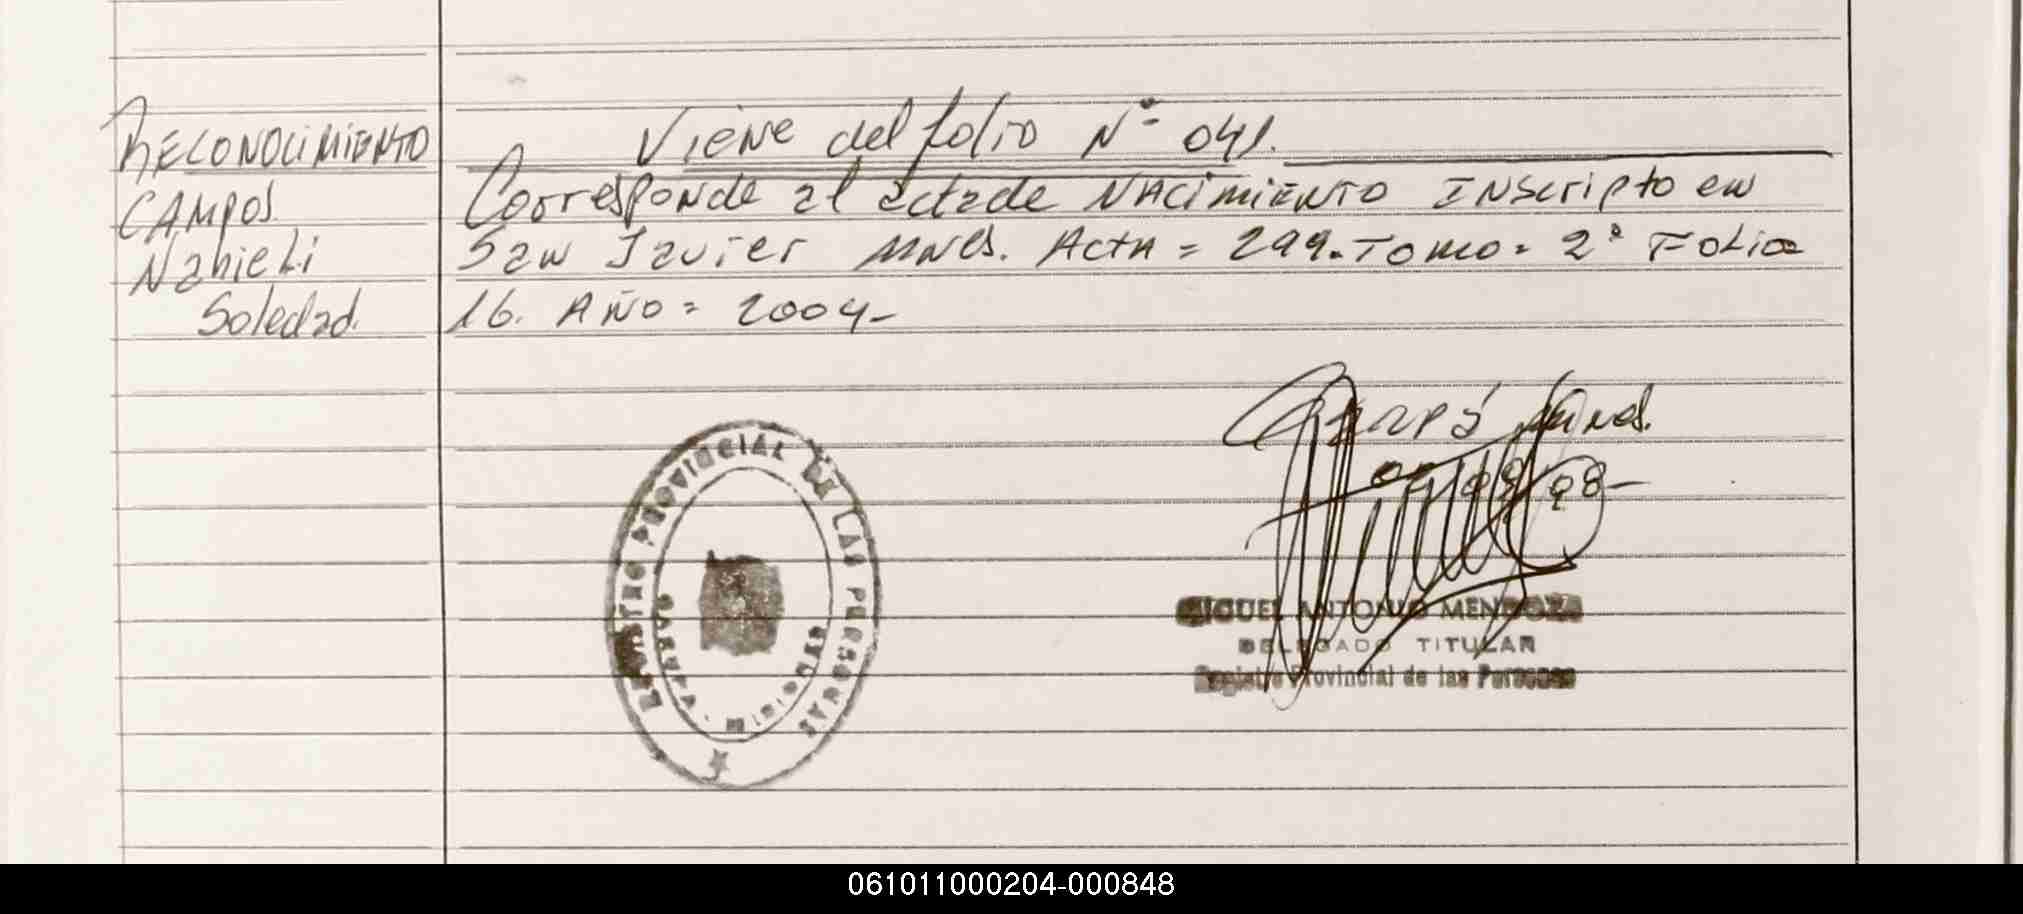 RECONOCIMIENTO
CAMPOS
Nahieli
Soledad.
Viene del folio N° 041.
Corresponde al acta de NACIMIENTO INScripto en
San Javier Mnes. Acta = 299. Tomo = 2° Folio
16. AÑO = 2004-
REGISTRO PROVINCIAL DE LAS PERSONAS
Garupá Mnes.
08-
MIGUEL ANTONIO MENDOZA
DELEGADO TITULAR
Registro Provincial de las Personas
061011000204-000848